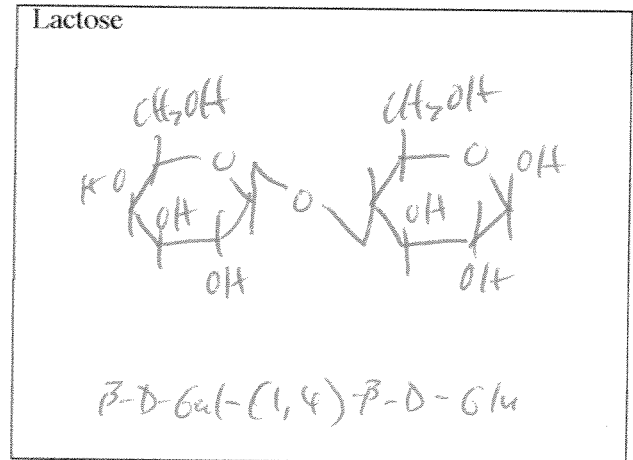 Lactose
CH₂OH CH₂OH
O O OH
HO OH O OH
OH OH
β-D-Gal-(1,4)-β-D-Glu